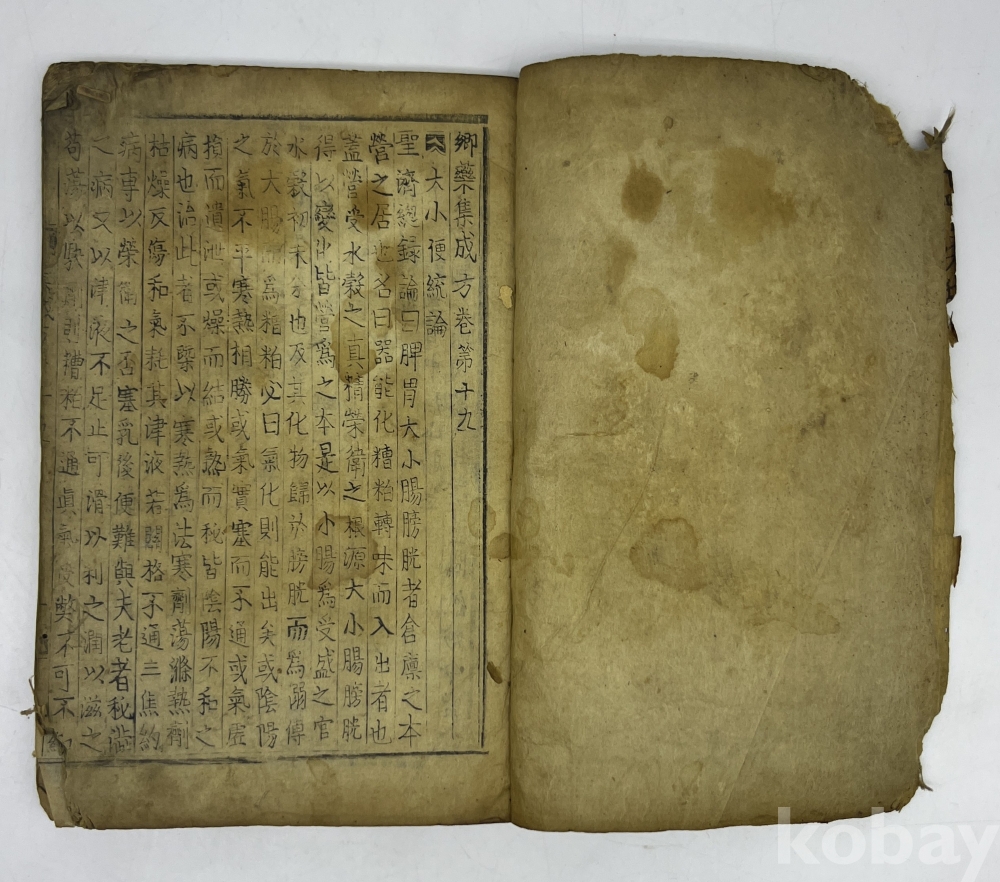 鄕藥集成方卷第十九
大小便統論
聖濟緫録論曰脾胃大小腸膀胱者倉廩之本
營之居也名曰器能化糟粕轉味而入出者也
蓋營受水穀之真精榮衛之根源大小腸膀胱
得以變化皆營爲之本是以小腸爲受盛之官
水穀初未分也及其化物歸於膀胱而為溺傳
於大腸而為糟粕必曰氣化則能出矣或陰陽
之氣不平寒熱相勝或氣實塞而不通或氣虛
損而遺泄或燥而結或熱而秘皆陰陽不和之
病也治此者不槩以寒熱爲法寒劑蕩滌熱劑
枯燥反傷和氣耗其津液若關格不通三焦約
病専以榮衛之否塞乳後便難與夫老者秘澁
之病又以津液不足止可滑以利之潤以滋之
苟蕩以駃劑則糟粕不通眞氣弊不可不
kobay